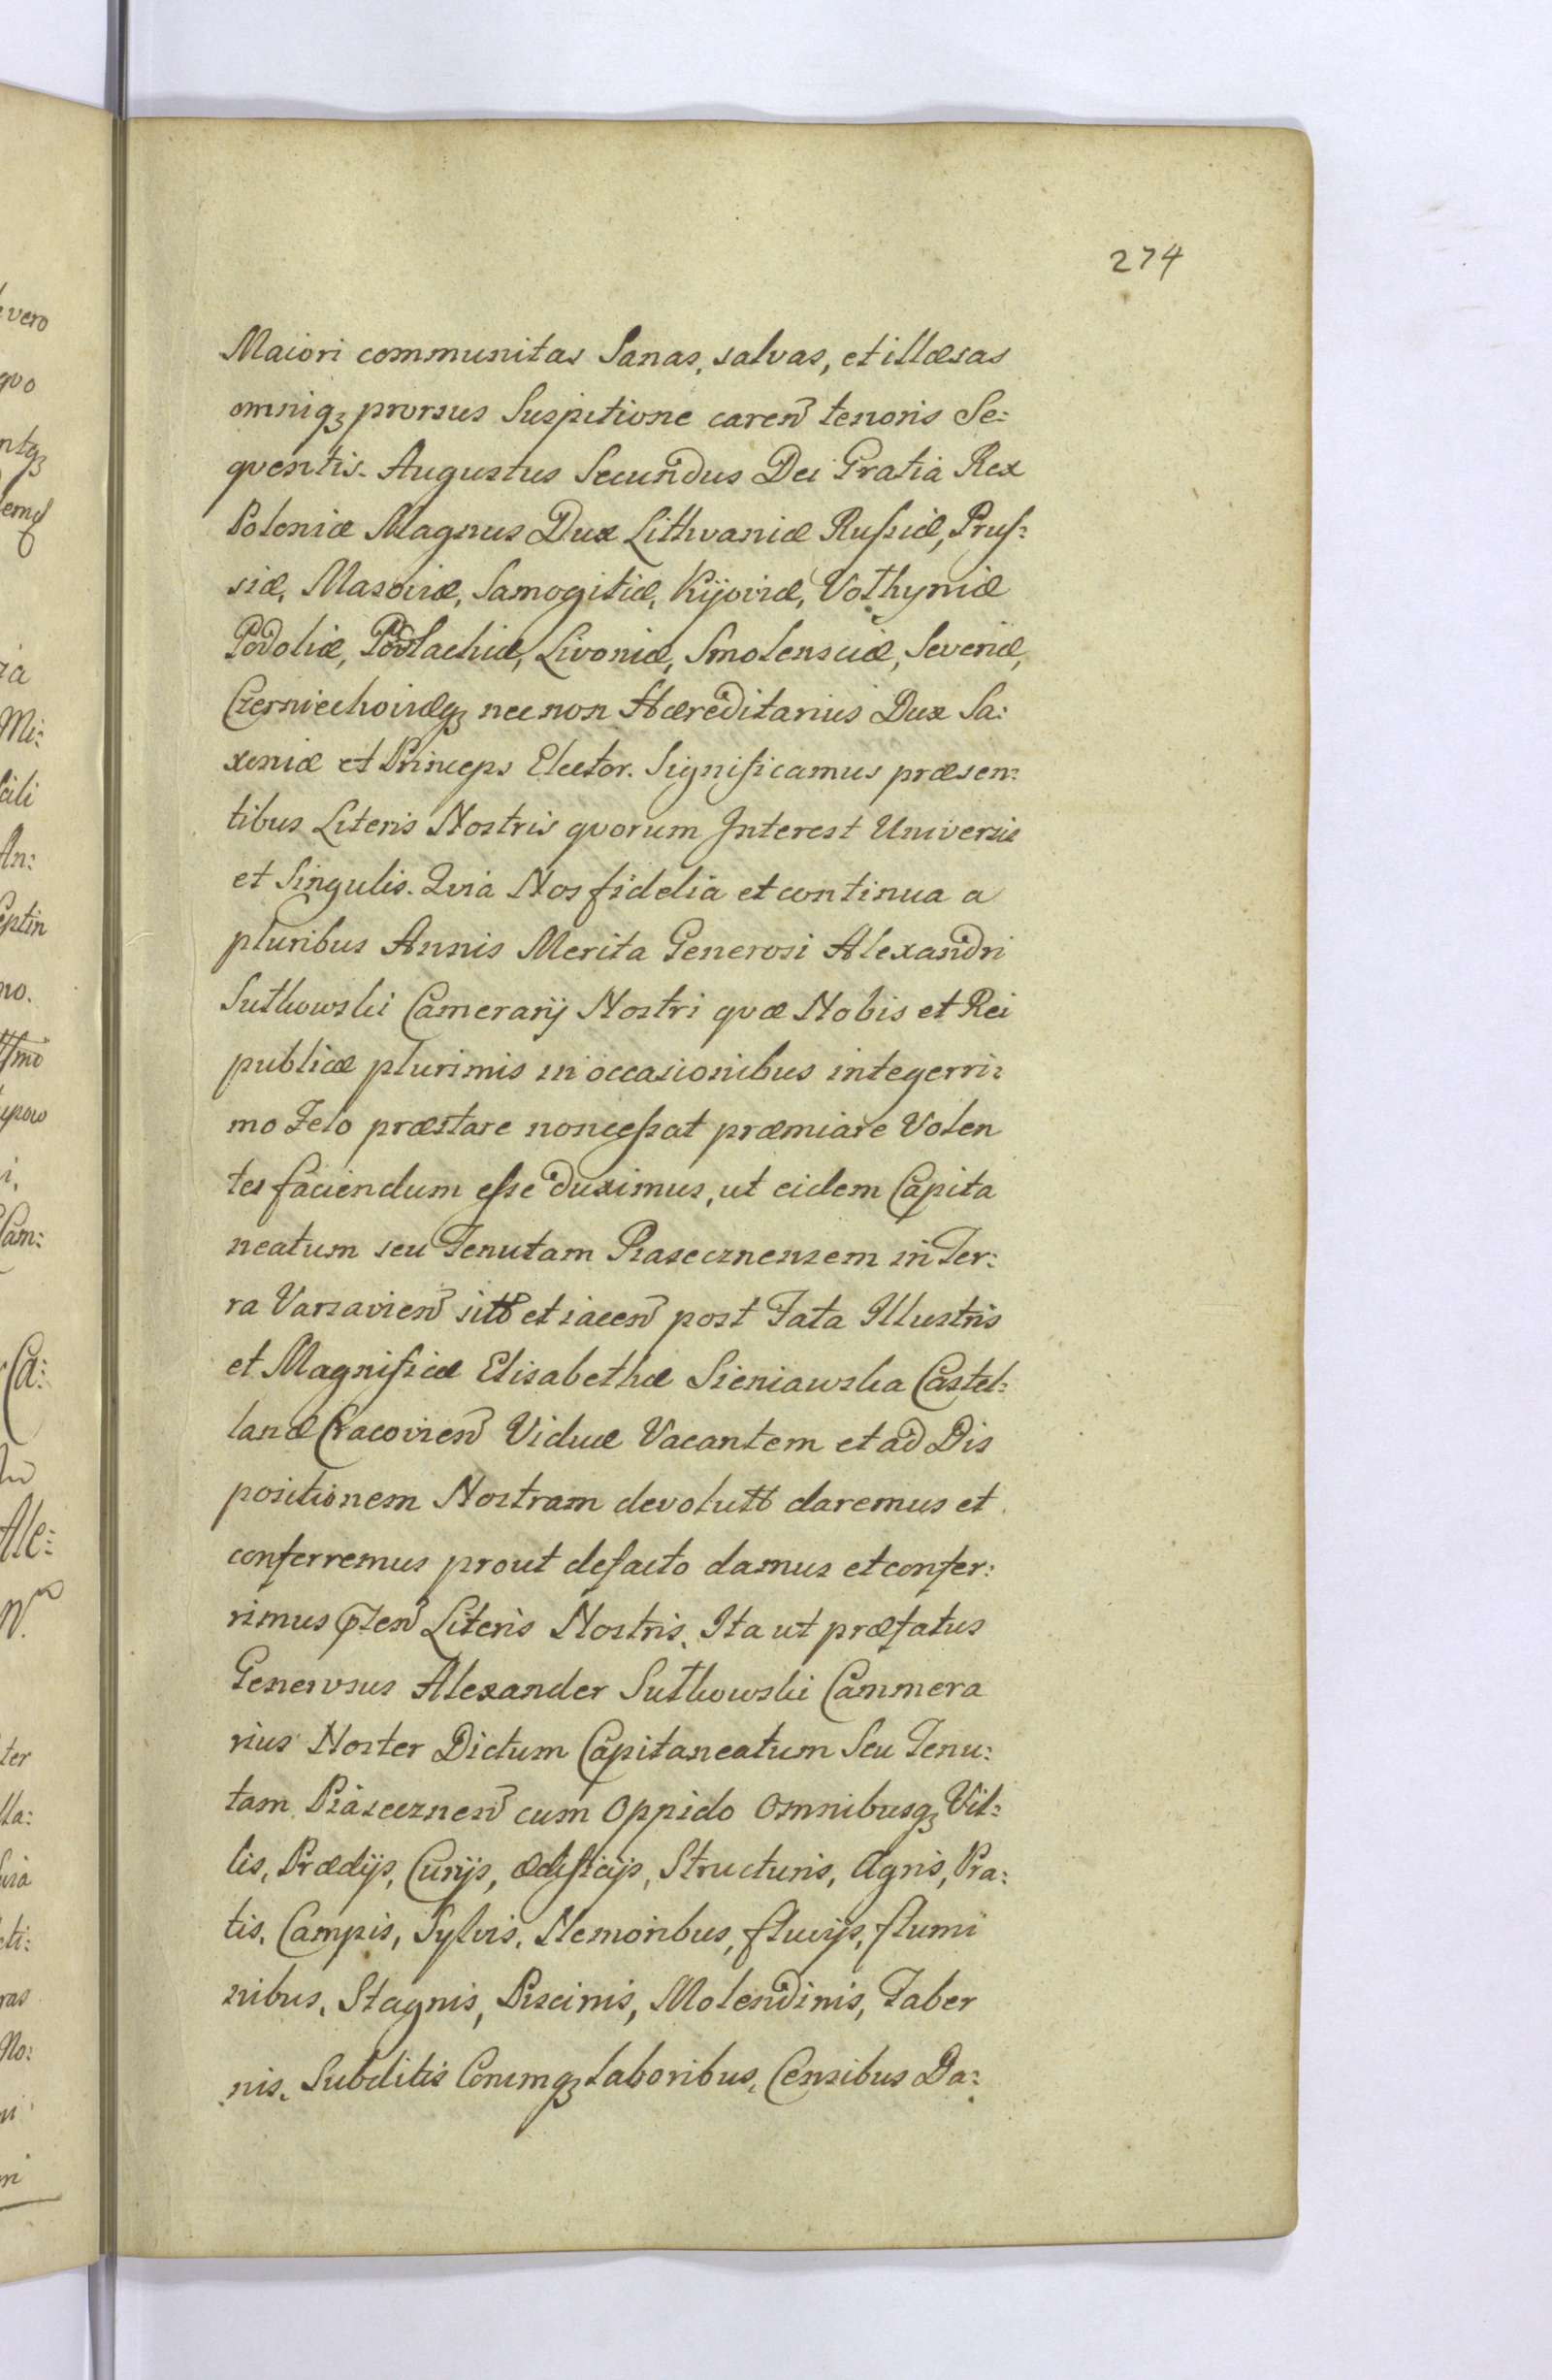 274
Maiori communitas Sanas, salvas, et illæsas
omniqꝫ prorsus Suspitione caren̄ tenoris Se:
qventis. Augustus Secundus Dei Gratia Rex
Poloniæ Magnus Dux Lithvaniæ Rußiæ, Pruß:
siæ, Masoviæ, Samogitiæ, Kijoviæ, Vołhyniæ
Podoliæ, Podlachiæ, Livoniæ, Smolensciæ, Severiæ,
Czerniechoviæqꝫ nec non Hæreditarius Dux Sa:
xoniæ et Princeps Elector. Significamus præsen:
tibus Literis Nostris qvorum Interest Universis
et Singulis. Qvia Nos fidelia et continua a
pluribus Annis Merita Generosi Alexandri
Sułkowski Camerarij Nostri qvæ Nobis et Rei
publicæ plurimis in occasionibus integerri:
mo Zelo præstare non ceßat præmiare Volen
tes faciendum eße duximus, ut eidem Capita
neatum seu Tenutam Piasecznensem in Ter:
ra Varsavien̄ sitt̄ et iacen̄ post Fata Illustris
et Magnificæ Elisabethæ Sieniawska Castel:
lanæ Cracovien̄ Viduæ Vacantem et ad Dis
positionem Nostram devolutt̄ daremus et
conferremus prout defacto damus et confer:
rimus p̄sen̄ Literis Nostris. Ita ut præfatus
Generosus Alexander Sułkowski Cammera
rius Noster Dictum Capitaneatum Seu Tenu:
tam Piasecznen̄ cum Oppido Omnibusqꝫ Vil:
lis, Prædijs, Curijs, ædificijs, Structuris, Agris, Pra:
tis, Campis, Sylvis, Nemoribus, fluvijs, flumi
nibus, Stagnis, Piscinis, Molendinis, Taber
nis, Subditis Eorumqꝫ laboribus, Censibus Da: